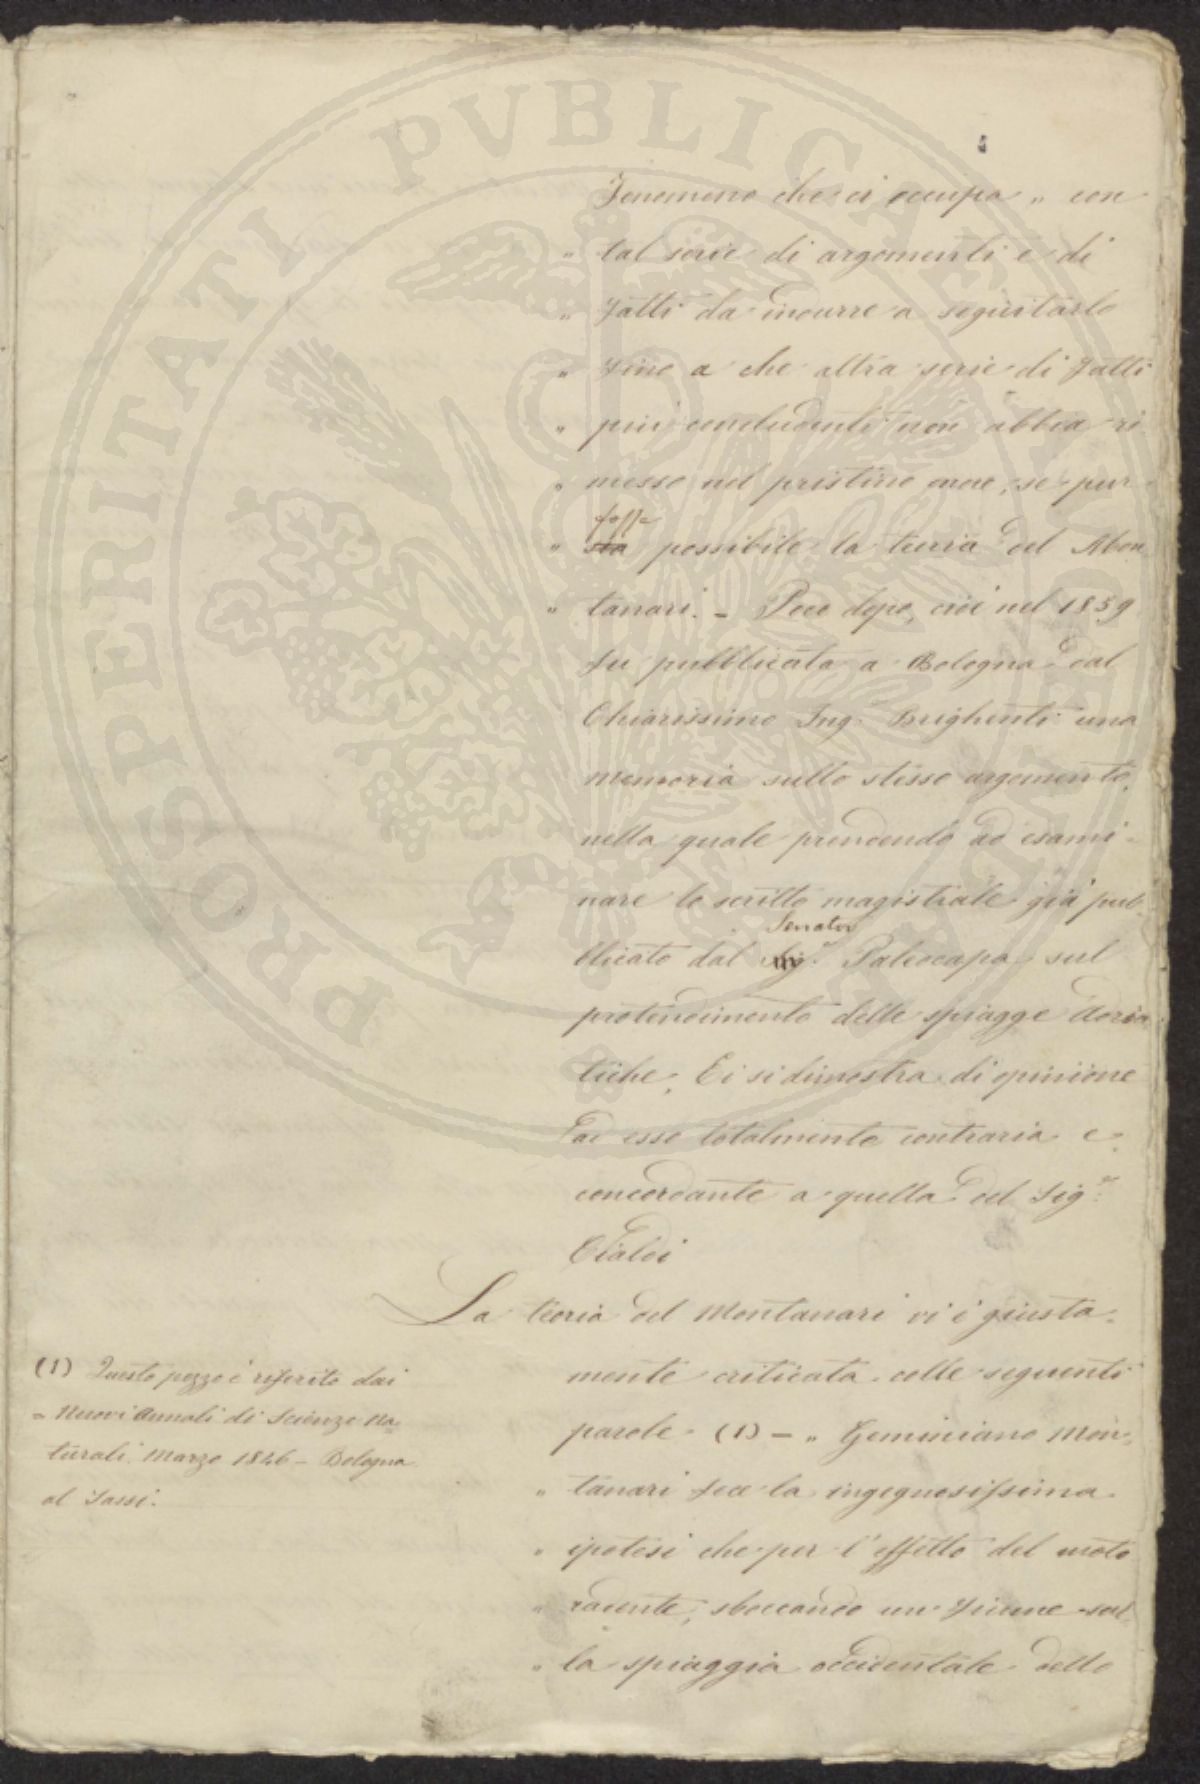 Fenomeno che ci occupa „ con
„ tal serie di argomenti e di
„ fatti da indurre a seguitarlo
„ fino a che altra serie di fatti
„ più concludenti non abbia ri
„ messo nel pristino onore, se pur
fosse
„ sia possibile la teoria del Mon
„ tanari. – Poco dopo, cioè nel 1859
fu pubblicata a Bologna dal
Chiarissimo Ing. Brighenti una
memoria sullo stesso argomento,
nella quale prendendo ad esami-
nare lo scritto magistrale già pub-
Senator
blicato dal Sig.r Paleocapa sul
protendimento delle spiagge Adria
tiche, Ei si dimostra di opinione
ad esso totalmente contraria e
concordante a quella del Sig.r
Cialdi
La teoria del Montanari vi è giusta-
mente criticata colle seguenti
parole (1) – „ Geminiano Mon-
„ tanari fece la ingegnosissima
„ ipotesi che per l'effetto del moto
„ radente, sboccando un fiume sul
„ la spiaggia occidentale dello
(1) Questo pezzo è riferito dai
= Nuovi Annali di Scienze Na
turali. Marzo 1846 – Bologna
al Sassi.
PROSPERITATI PVBLICAE